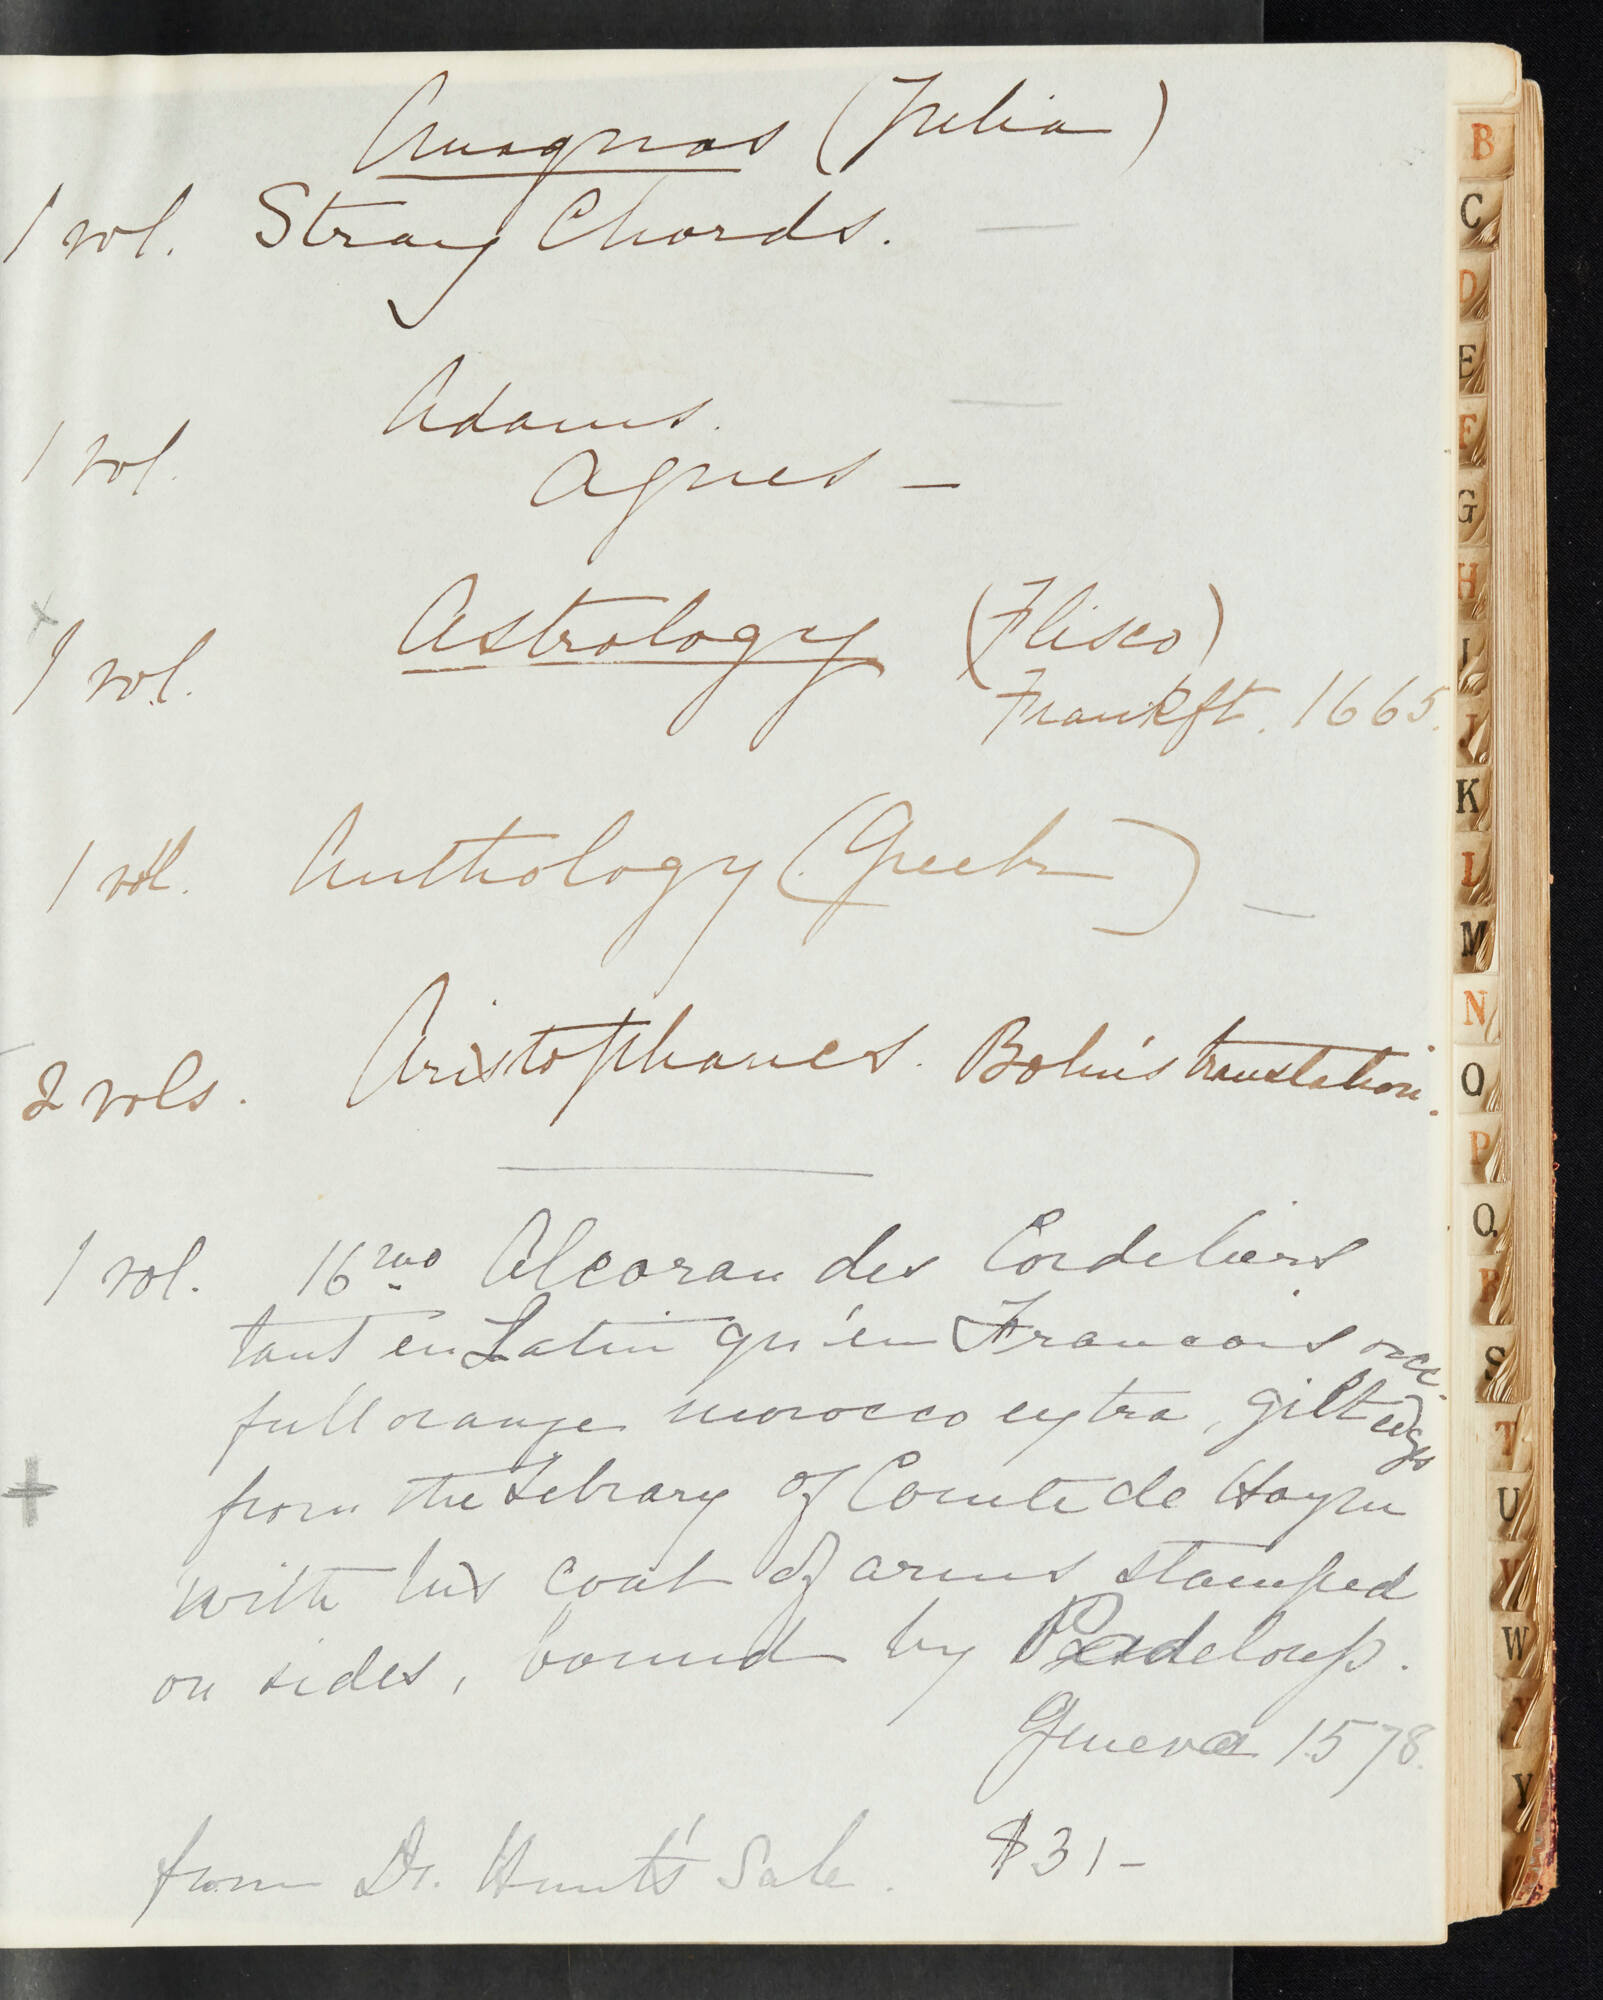 Anagnos (Julia)
1 vol. Stray Chords. —
Adams. —
1 vol. Agnes —
x
1 vol. Astrology (Flisco)
Frankft. 1665.
1 vol. Anthology (Greek) —
2 vols. Aristophanes. Bohn's translation.
1 vol. 16mo Alcoran des Cordeliers
tant en Latin qu'en Francois
full orange morocco extra, gilt edges
+ from the Library of Comte de Hoym
with his coat of arms stamped
on sides, bound by Padeloup.
Geneva 1578.
from Dr. Hunt's Sale. $31–
B
C
D
E
F
G
H
I
J
K
L
M
N
O
P
Q
R
S
T
U
V
W
Y